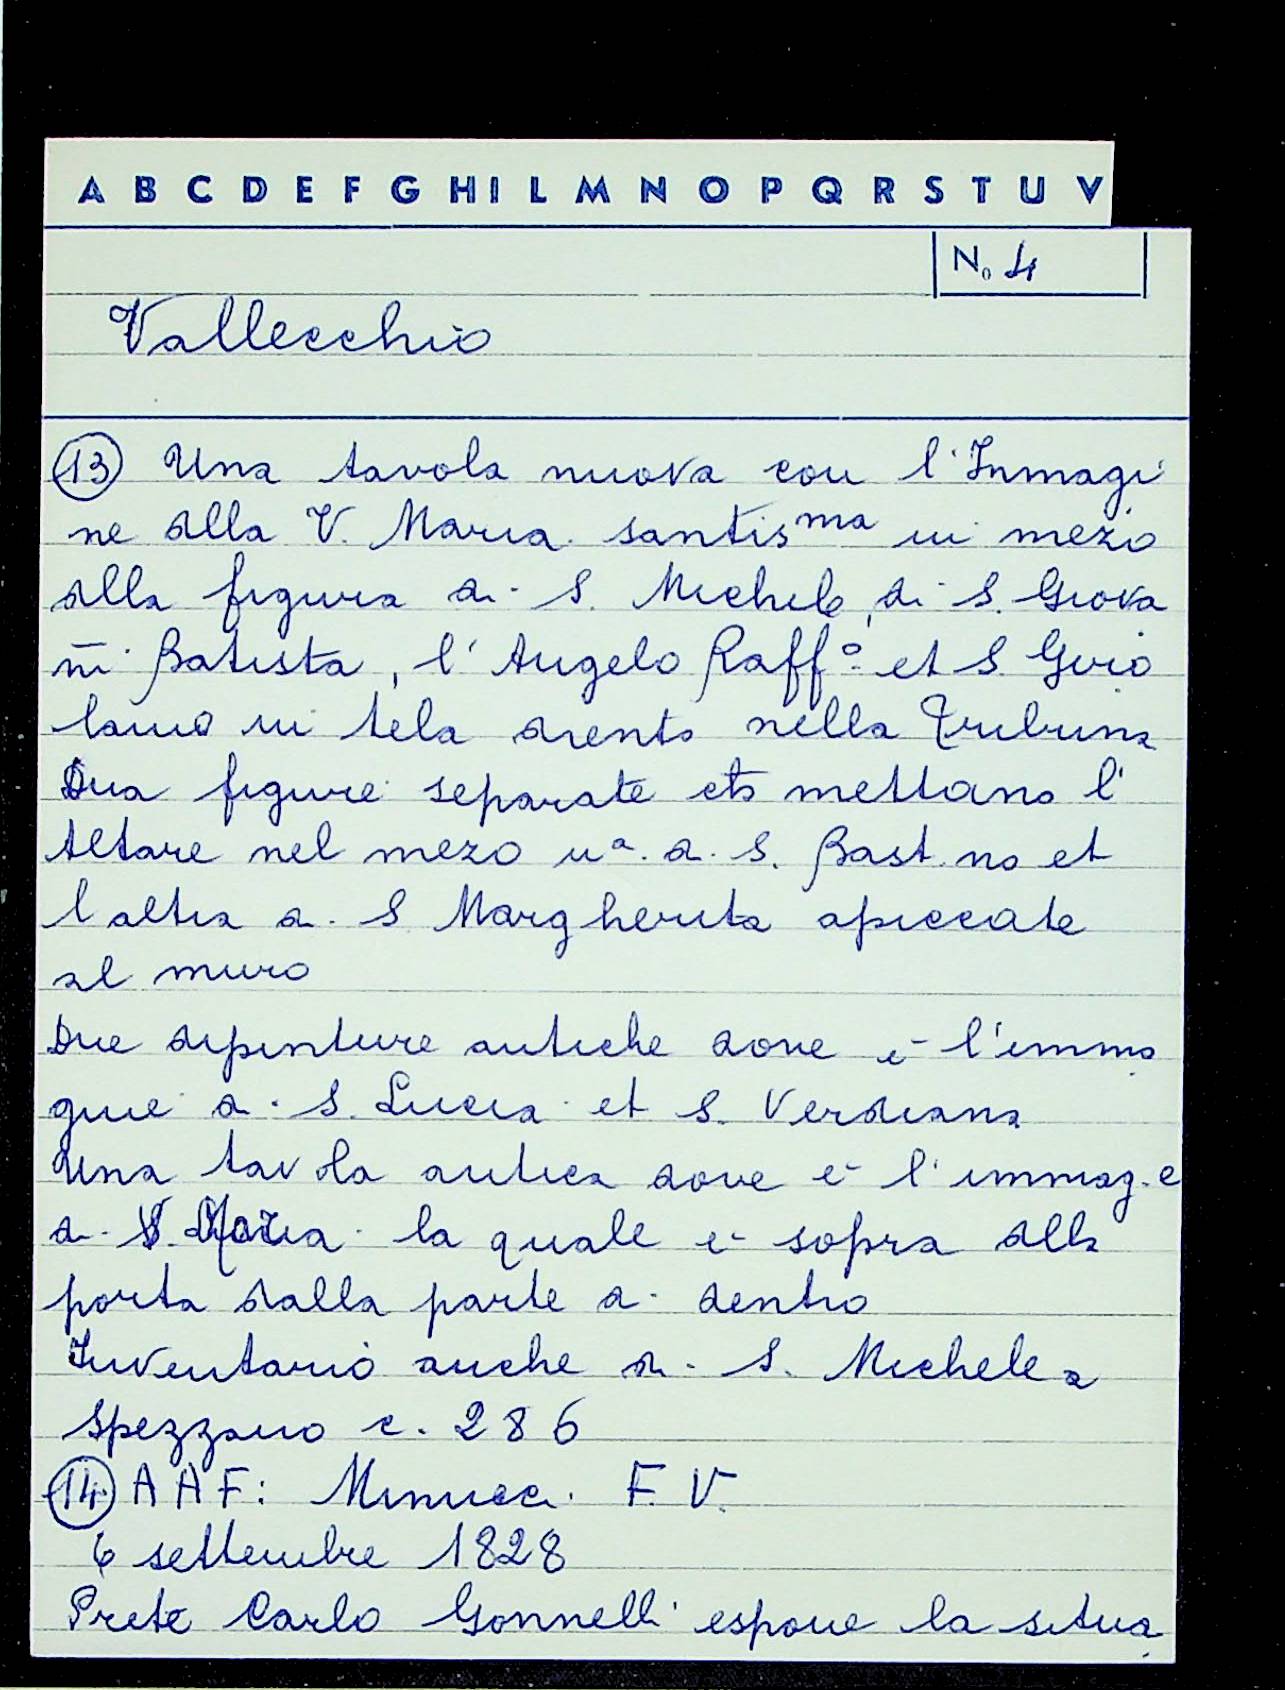 A B C D E F G H I L M N O P Q R S T U V
N. 4
Vallecchio
13 Una tavola nuova con l'Inmagi
ne della V. Maria santis ma in mezo
alla figura di S. Michele, di S. Giova
ni Batista, l'Angelo Raff.o et S. Giro
lamo in tela drento nella Tribuna
Dua figure separate che mettano l'
Altare nel mezo u.a di S. Bast.no et
l altra di S Margherita apiccate
al muro
Due dipinture antiche dove è l'imma
gine di S. Lucia et S. Verdiana
Una tavola antica dove è l'immag.e
di S. Maria la quale è sopra alla
porta dalla parte di dentro
Inventario anche di S. Michele a
Spezzano c. 286
14 A A F: Minucci F. V.
6 settembre 1828
Prete Carlo Gonnelli espone la situa